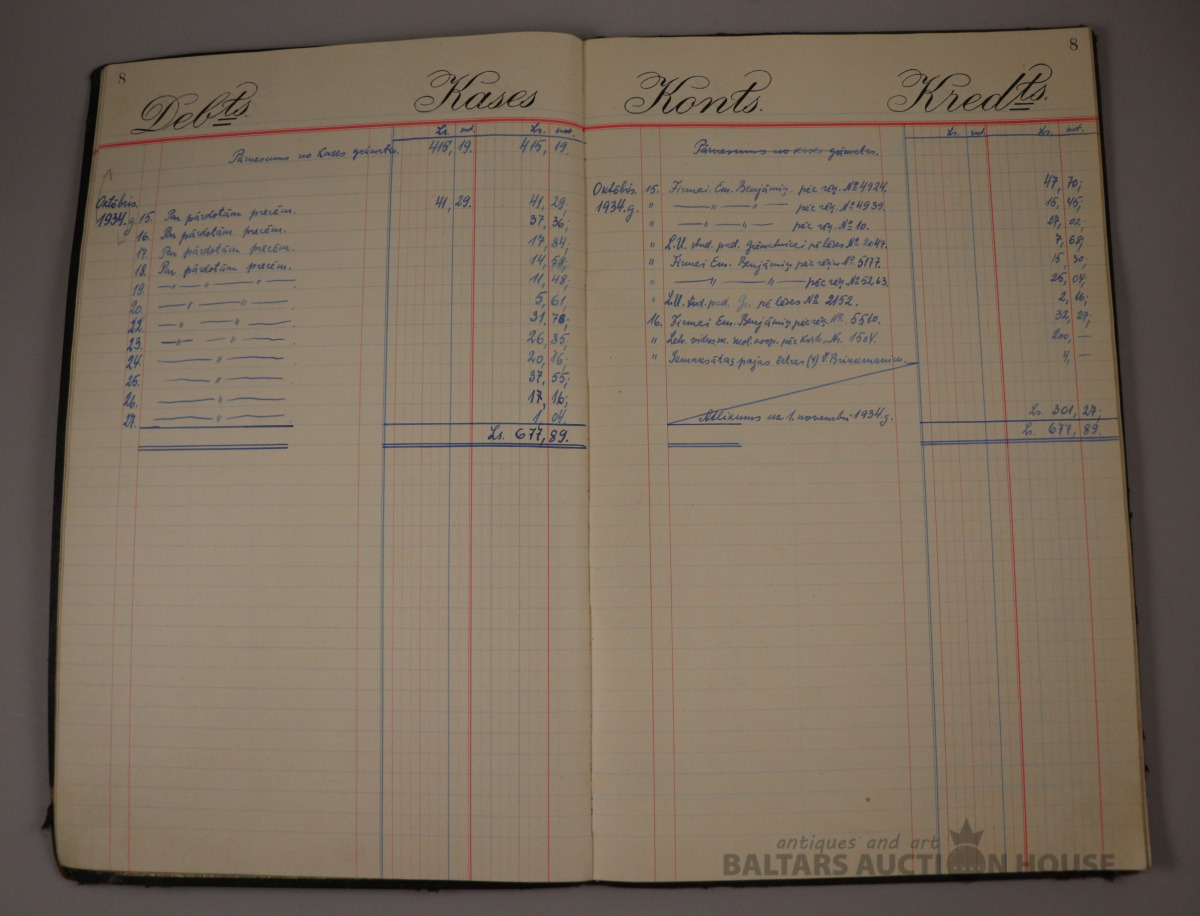 8
Debts. Kases
Ls. snt. Ls. snt.
Pārnesums no Kases grāmatas. 415, 19. 415, 19.
Oktōbris.
1934.g. 15. Par pārdotām precēm. 41, 29. 41, 29;
16. Par pārdotām precēm. 37, 36;
17. Par pārdotām precēm. 17, 84;
18. Par pārdotām precēm. 14, 58;
19. — " — " — 11, 48;
20. — " — 5, 61;
22. — " — " — 31, 78;
23. — " — " — 26, 85;
24. — " — 20, 16;
25. — " — 37, 55;
26. — " — 17, 16;
27. — " — 1, 04.
Ls. 677, 89.
8
Konts. Kredts.
Ls. snt. Ls. snt.
Pārnesums no grāmatas.
Oktōbris 15. Firmai Em. Benjāmiņ. pēc rēķ. No 4924. 47, 70;
1934.g. " — " — " — pēc rēķ. No 4939. 15, 45;
" — " — " — pēc rēķ. No 10. 27, 02;
" L.U. stud. pad. grāmatnīcai pēc No 2047. 7, 68;
" Firmai Em. Benjāmiņ pēc rēķ. No 5177. 15, 30;
" — " — " — pēc rēķ. No 5263. 25, 04;
" L.U. stud. pad. No 2152. 2, 16;
16. Firmai Em. Benjāmiņ pēc rēķ. No. 5510. 32, 27;
" Latv. vidussk. skol. koop. pēc kvīts. Nr. 1504. 200, —
" Iemaksātas pajas četras (4) V. Brinkmanim. 4, —
Atlikums uz 1. novembri 1934.g. Ls 301, 27;
Ls. 677, 89.
antiques and art
BALTARS AUCTION HOUSE